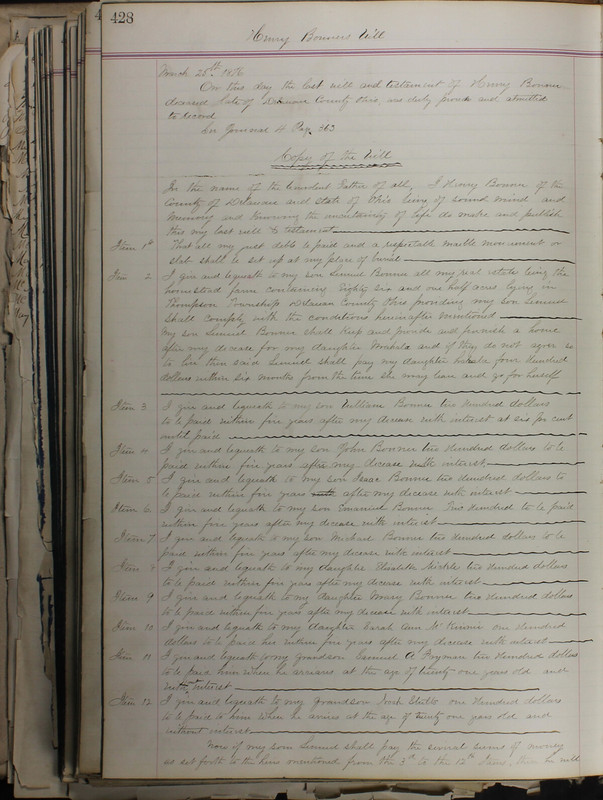 428
Henry Bonners Will
March 25th 1876
On this day the last will and testament of Henry Bonner
deceased late of Delaware County Ohio, was duly proven and admitted
to record
See General 4 Page 363
Copy of the Will
In the name of the benevolent Father of all, I Henry Bonner of the
County of Delaware and state of Ohio being of sound mind and
memory and knowing the uncertainty of life do make and publish
this my last will & testament
Item 1st That all my just debts be paid and a respectable marble monument or
slab shall be set up at my place of burial
Item 2 I give and bequeath to my son Samuel Bonner all my real estate being the
homestead farm containing Eighty six and one half acres lying in
Thompson Township Delaware County Ohio providing my son Samuel
shall comply with the conditions hereinafter mentioned
My son Samuel Bonner shall keep and provide and furnish a home
after my decease for my daughter and if they do not agree so
to live then said Samuel shall pay my daughter four Hundred
dollars within six months from the time she may leave and go for herself
Item 3 I give and bequeath to my son William Bonner two Hundred dollars
to be paid within five years after my decease with interest at six per cent
until paid
Item 4 I give and bequeath to my son John Bonner two Hundred dollars to be
paid within five years after my decease with interest
Item 5 I give and bequeath to my son Isaac Bonner two Hundred dollars to
be paid within five years with after my decease with interest
Item 6 I give and bequeath to my son Emanuel Bonner Two Hundred to be paid
within five years after my decease with interest
Item 7 I give and bequeath to my son Michael Bonner two Hundred dollars to be
paid within five years after my decease with interest
Item 8 I give and bequeath to my daughter Elizabeth two Hundred dollars
to be paid within five years after my decease with interest
Item 9 I give and bequeath to my daughter Mary Bonner two Hundred dollars
to be paid within five years after my decease with interest
Item 10 I give and bequeath to my daughter Sarah Ann McKinnie one Hundred
dollars to be paid her within five years after my decease with interest
Item 11 I give and bequeath to my grandson Samuel A two Hundred dollars
to be paid him when he arrives at the age of twenty one years old and
with interest
Item 12 I give and bequeath to my Grandson one Hundred dollars
to be paid to him when he arrives at the age of twenty one years old and
without interest
Now if my son Samuel shall pay the several sums of money
as set forth to the heirs mentioned from the 3rd to the 12th Items, then he will